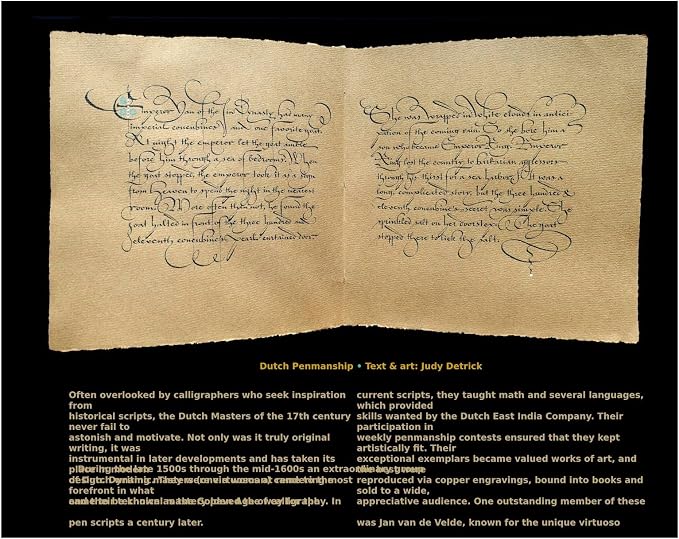 Emperor Yan of the Jin Dynasty had many
imperial concubines and one favorite goat.
At night the emperor let the goat amble
before him through a sea of bedrooms. When
the goat stopped, the emperor took it as a sign
from heaven to spend the night in the nearest
room. More often than not, he found the
goat halted in front of the three hundred and
eleventh concubine's pearl-curtained door.
She was wrapped in white clouds in antici-
pation of the coming rain. So she bore him a
son who became Emperor Jing. Emperor
Jing lost the country to barbarian aggressors
through his thirst for a sea harbor. It was a
long, complicated story, but the three hundred &
eleventh concubine's secret was simple. She
sprinkled salt on her doorstep. The goat
stopped there to lick the salt.
Dutch Penmanship • Text & art: Judy Detrick
Often overlooked by calligraphers who seek inspiration
from
historical scripts, the Dutch Masters of the 17th century
never fail to
astonish and motivate. Not only was it truly original
writing, it was
instrumental in later developments and has taken its
During the late 1500s through the mid-1600s an extraordinary group
forefront in what
pen scripts a century later.
current scripts, they taught math and several languages,
which provided
skills wanted by the Dutch East India Company. Their
participation in
weekly penmanship contests ensured that they kept
artistically fit. Their
exceptional exemplars became valued works of art, and
reproduced via copper engravings, bound into books and
sold to a wide,
appreciative audience. One outstanding member of these
was Jan van de Velde, known for the unique virtuoso